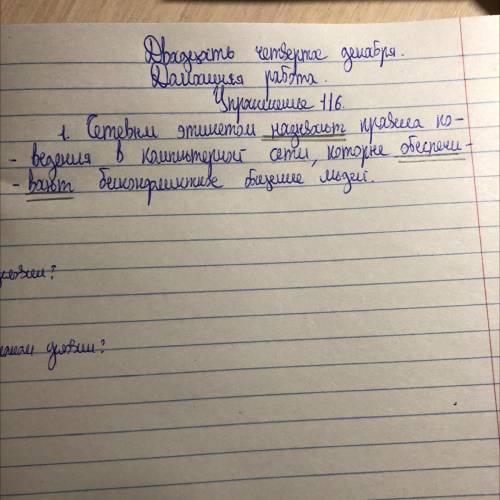 Двадцать четвертое декабря.
Домашняя работа.
Упражнение 116.
1. Сетевым этикетом называют правила по-
- ведения в компьютерной сети, которые обеспечи-
- вают бесконфликтное общение людей.
условии?
каком условии?